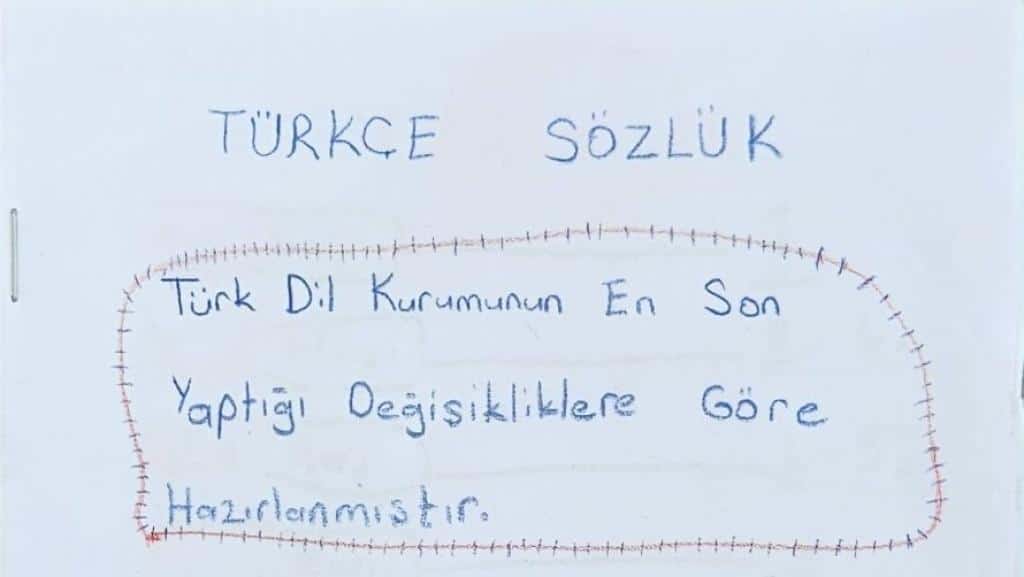 TÜRKÇE SÖZLÜK
Türk Dil Kurumunun En Son
Yaptığı Değişikliklere Göre
Hazırlanmıştır.